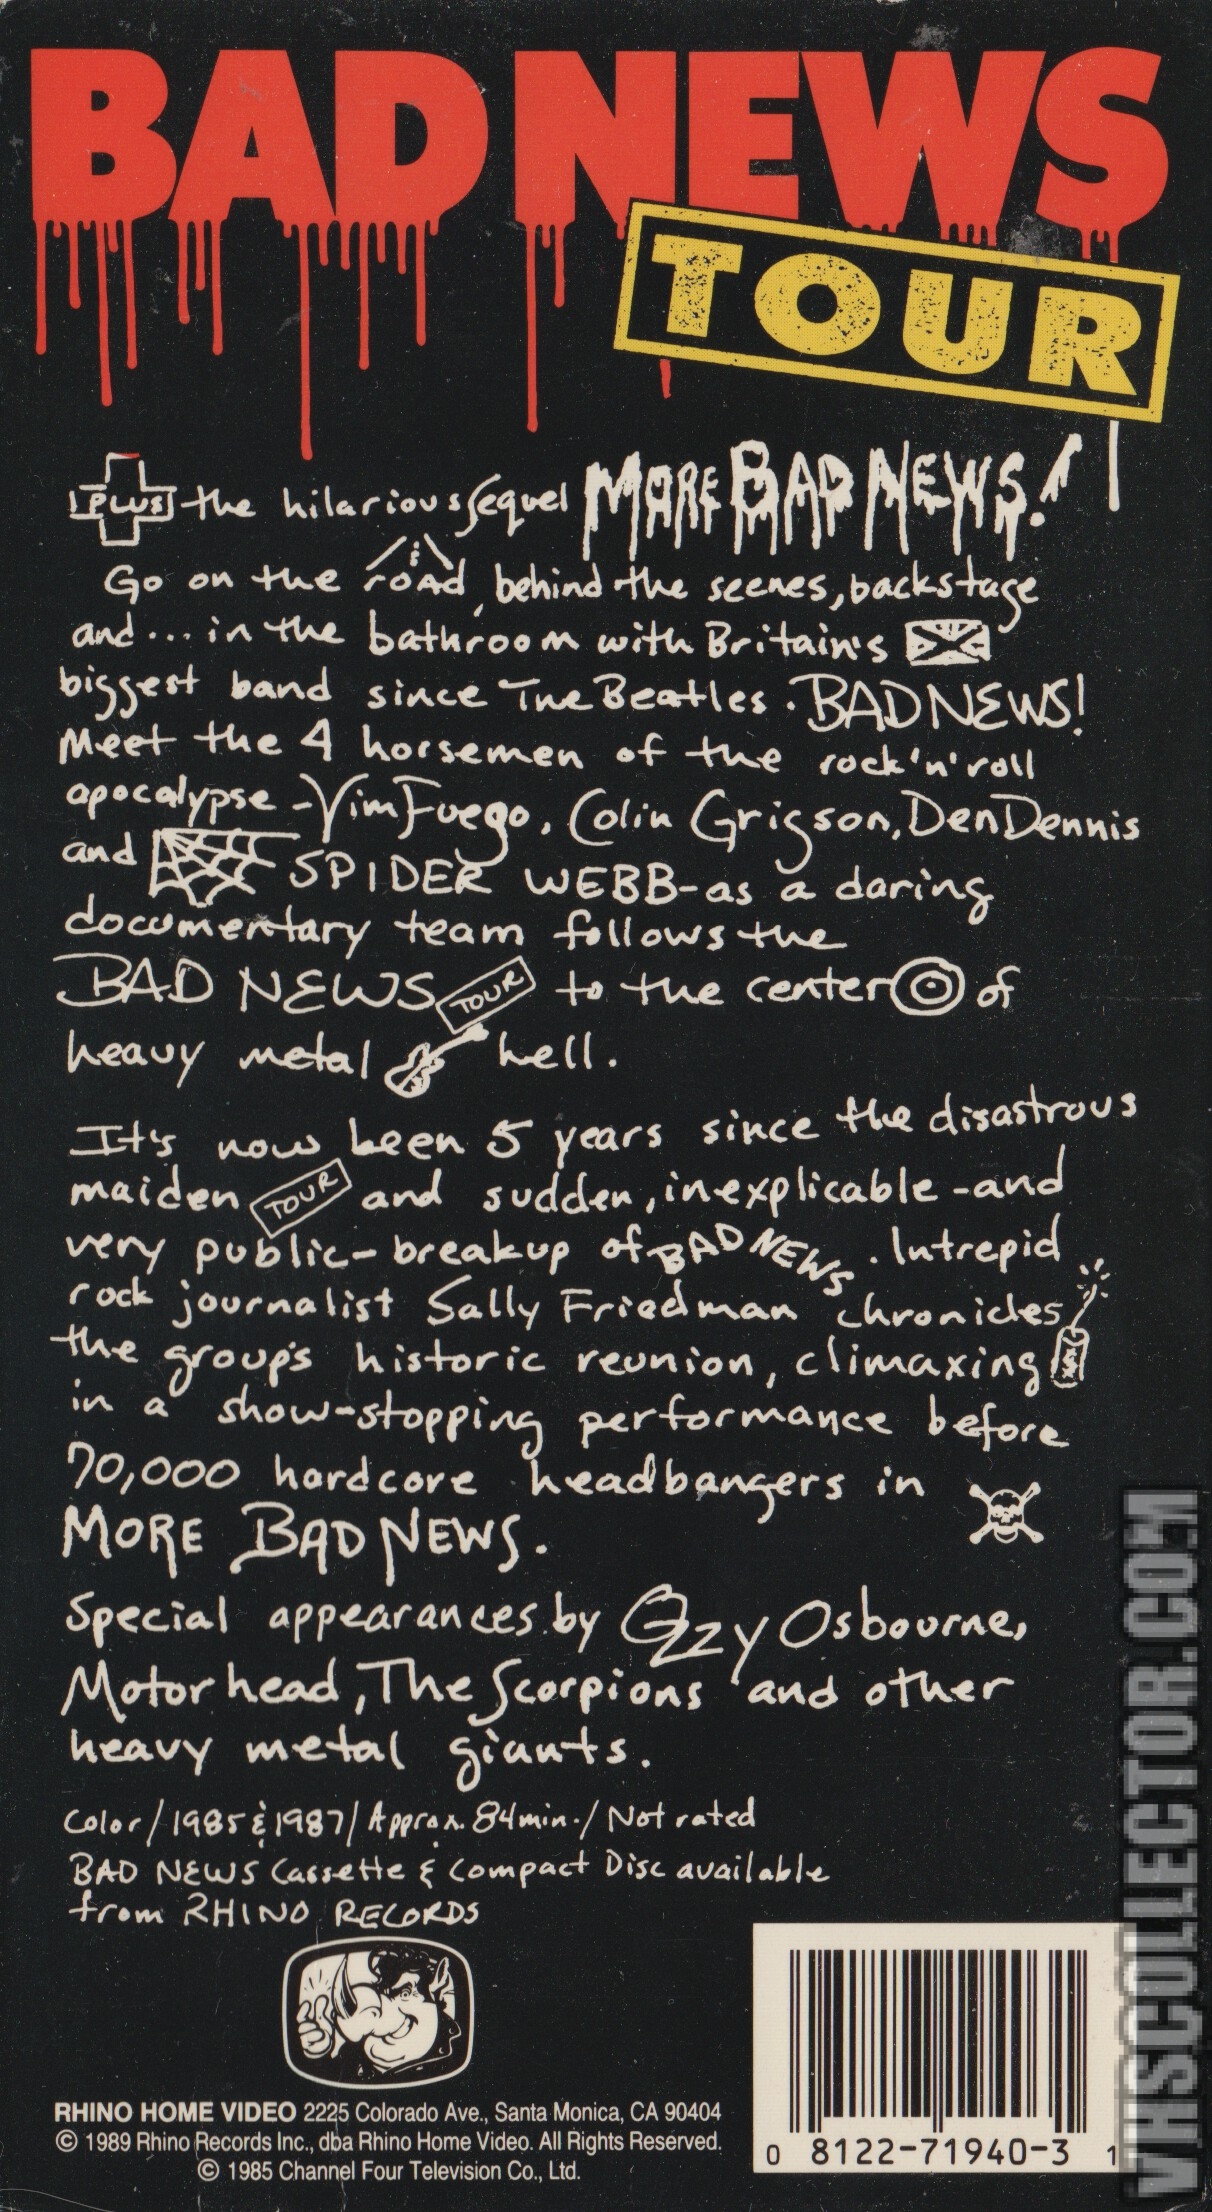 BAD NEWS
TOUR
PLUS the hilarious sequel MORE BAD NEWS!
Go on the road, behind the scenes, backstage
and... in the bathroom with Britain's
biggest band since The Beatles. BAD NEWS!
Meet the 4 horsemen of the rock'n'roll
apocalypse - Vim Fuego, Colin Grigson, Den Dennis
and SPIDER WEBB - as a daring
documentary team follows the
BAD NEWS TOUR to the center of
heavy metal hell.
It's now been 5 years since the disastrous
maiden TOUR and sudden, inexplicable - and
very public - breakup of BAD NEWS. Intrepid
rock journalist Sally Friedman chronicles
the group's historic reunion, climaxing
in a show-stopping performance before
70,000 hardcore headbangers in
MORE BAD NEWS.
Special appearances by Ozzy Osbourne,
Motorhead, The Scorpions and other
heavy metal giants.
Color / 1985 & 1987 / Approx. 84 min. / Not rated
BAD NEWS Cassette & Compact Disc available
from RHINO RECORDS
RHINO HOME VIDEO 2225 Colorado Ave., Santa Monica, CA 90404
© 1989 Rhino Records Inc., dba Rhino Home Video. All Rights Reserved.
© 1985 Channel Four Television Co., Ltd.
0 8122-71940-3 1
VHSCOLLECTOR.COM